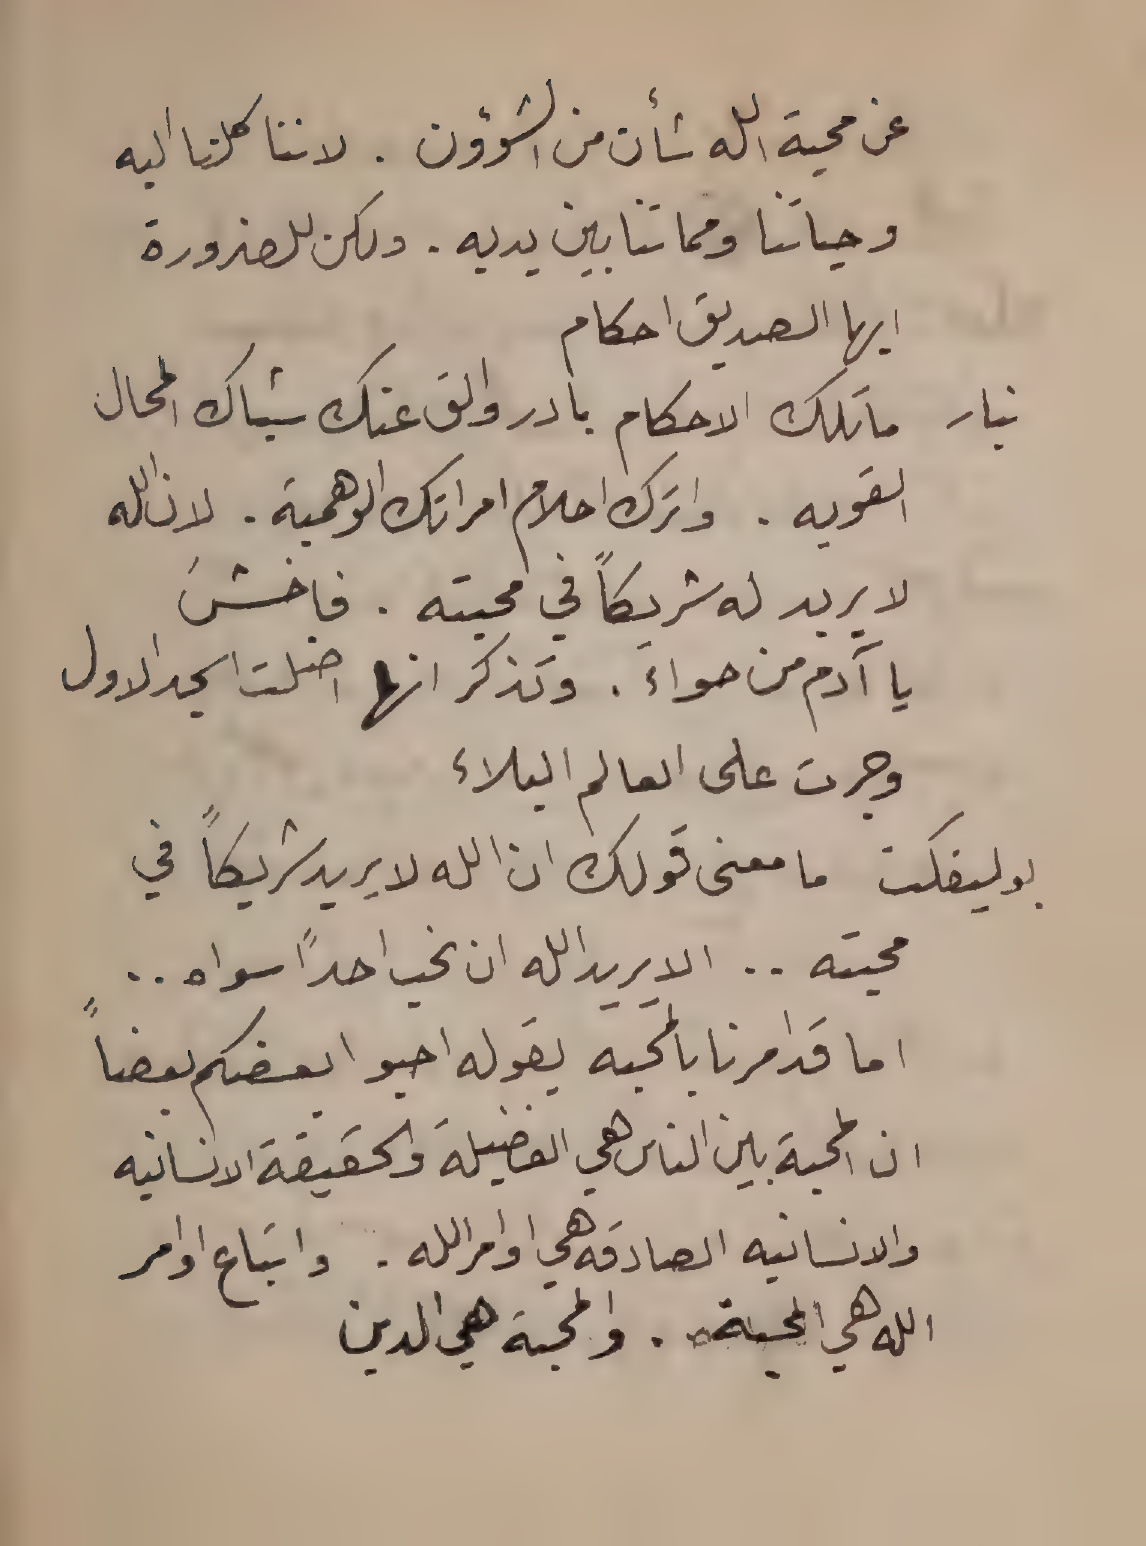 عن محبة الله شأن من الشؤون . لاننا كلنا اليه
وحياتنا ومماتنا بين يديه . ولكن للضرورة
ايها الصديق احكام
نيار ما تلك الاحكام بادر والق عنك شباك المحال
القويه . واترك احلام امراتك الوهمية . لان الله
لا يريد له شريكاً في محبته . فاخشَ
يا آدم من حواء . وتذكر انها اضلت الجد الاول
وجرت على العالم البلاء
بوليفكت ما معنى قولك ان الله لا يريد شريكاً في
محبته .. الا يريد الله ان نحب احداً سواه ..
اما قد امرنا بالمحبه بقوله احبوا بعضكم بعضاً
ان المحبة بين الناس هي الفضيلة والحقيقة الانسانيه
والانسانيه الصادقه هي اوامر الله . واتباع اوامر
الله هي المحبة . والمحبة هي الدين